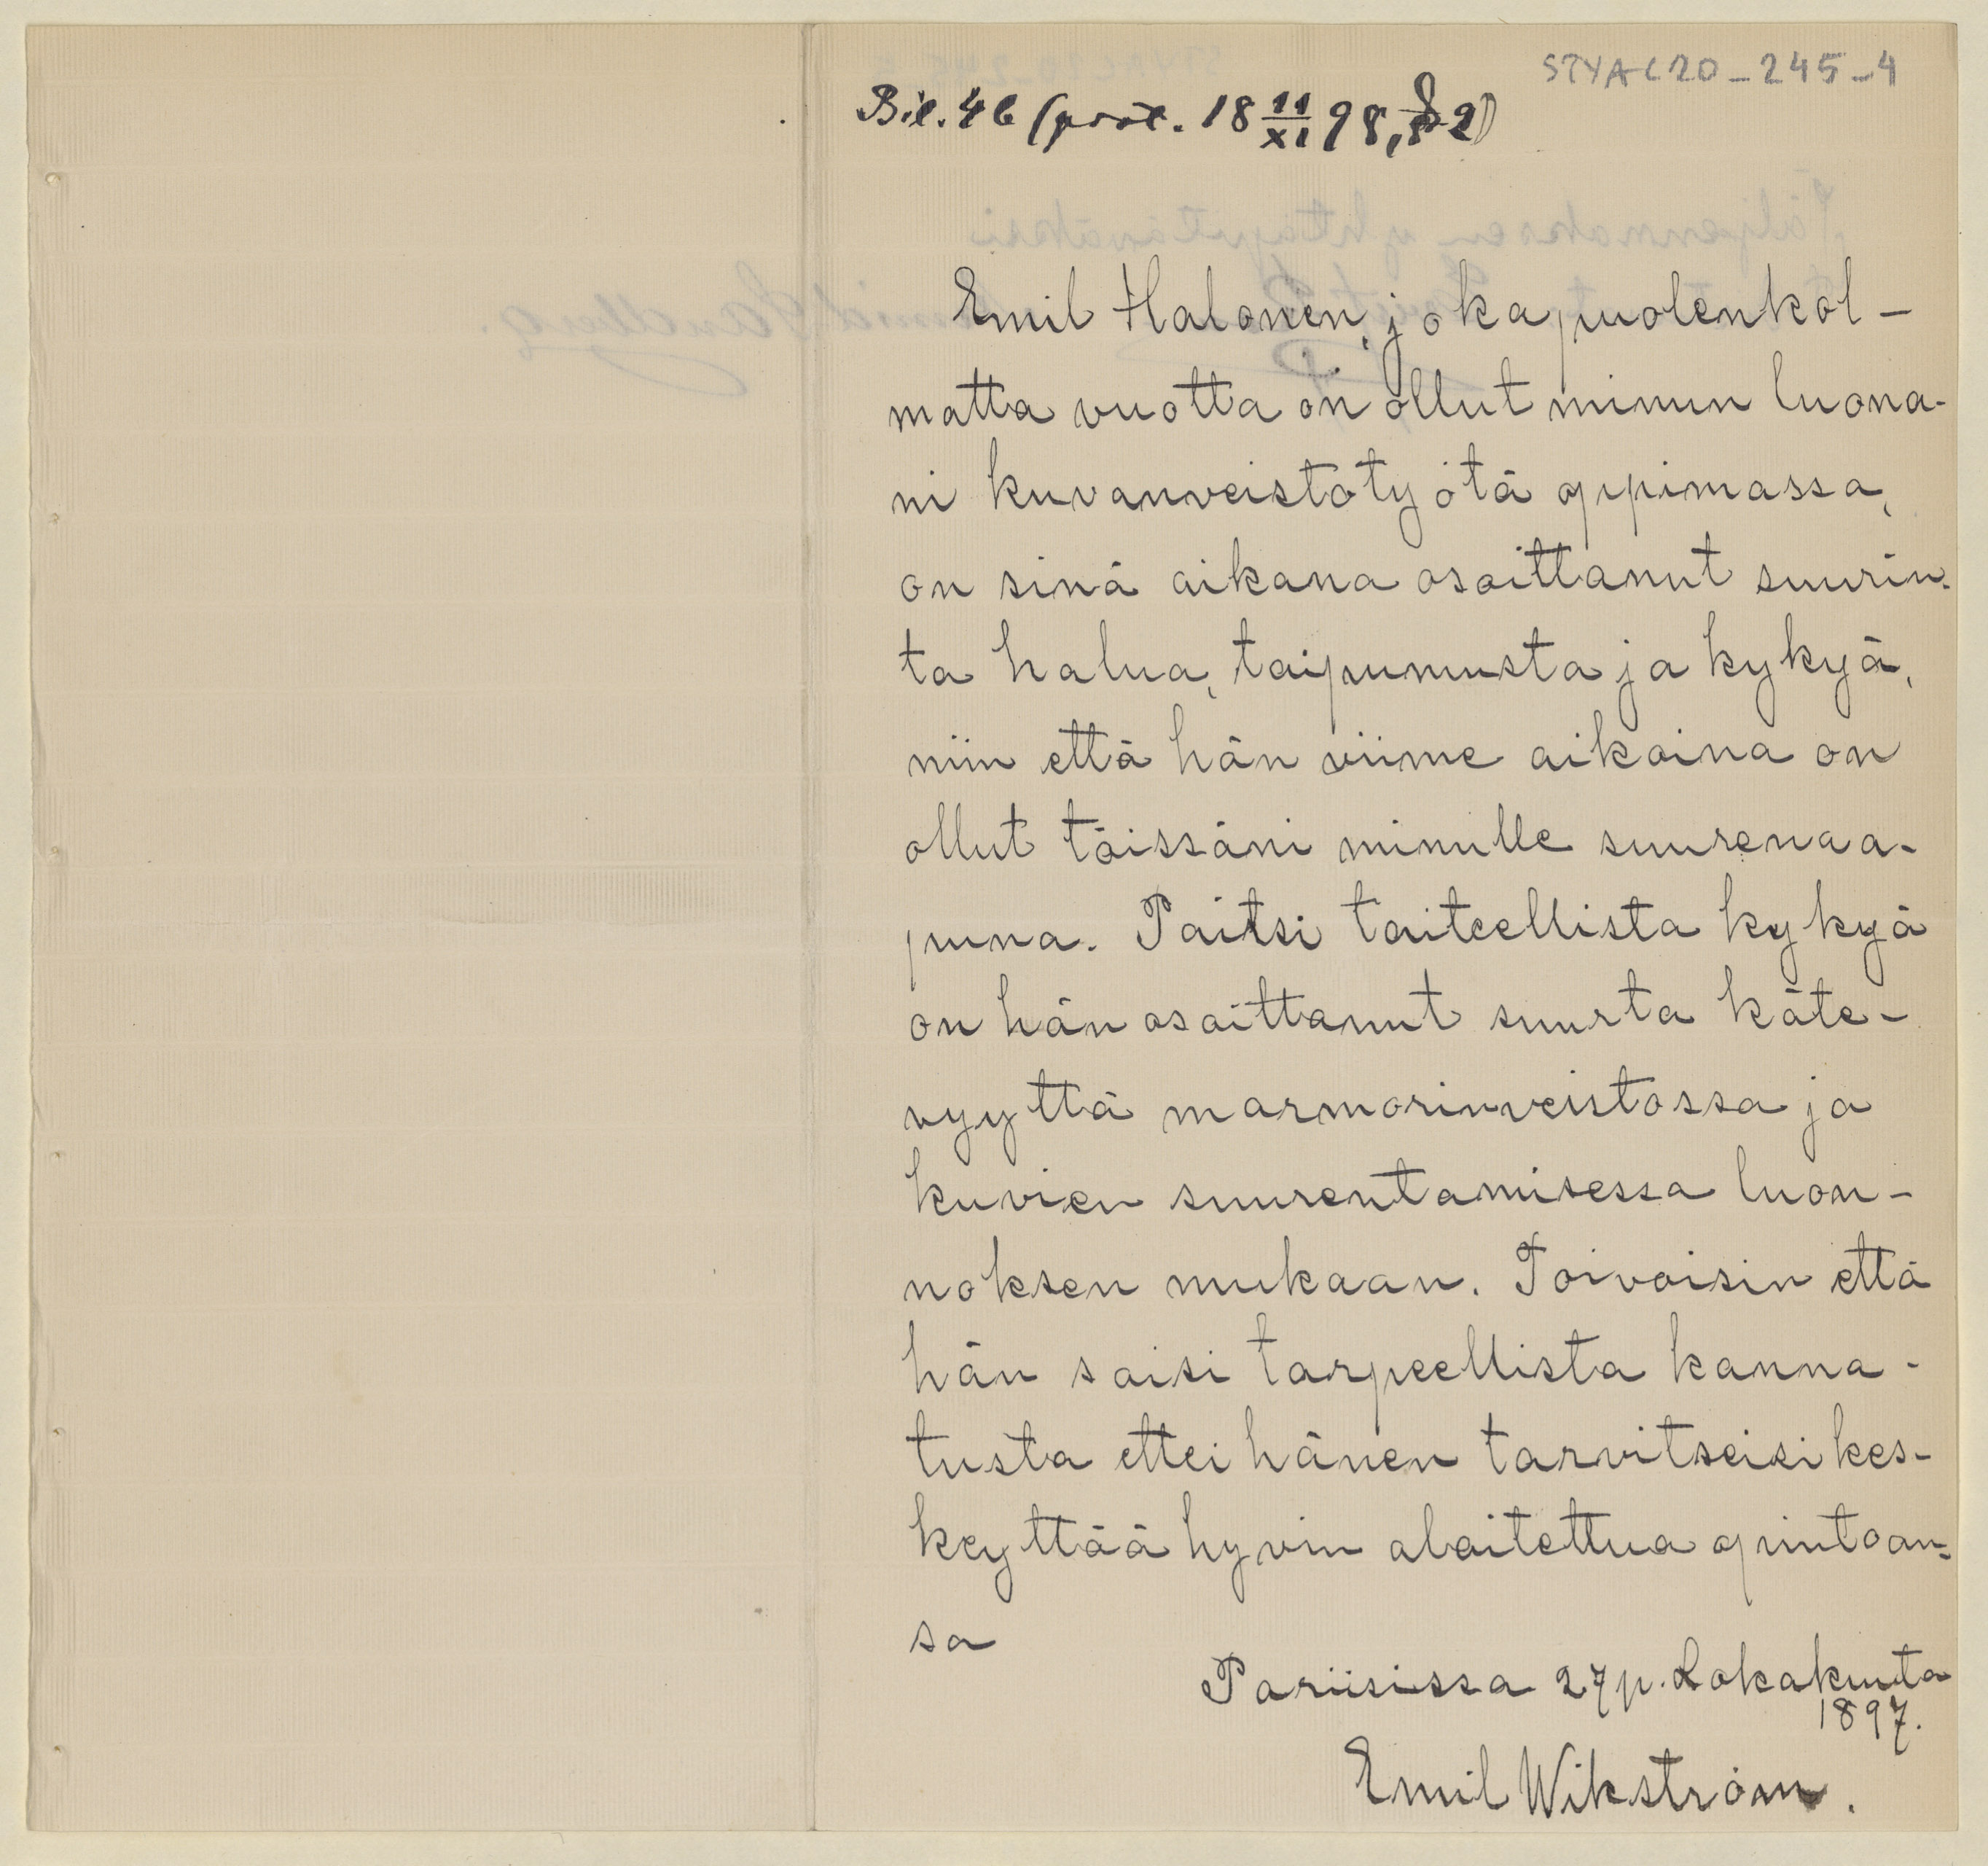 STYAC20_245_4
Bil. 4b (prot. 18 11/XI 98, § 2)
Emil Halonen, joka puolenkol-
matta vuotta on ollut minun luona-
ni kuvanveistotyötä oppimassa,
on sinä aikana osoittanut suurin-
ta halua, taipumusta ja kykyä,
niin että hän viime aikoina on
ollut töissäni minulle suurenaa-
puna. Paitsi taiteellista kykyä
on hän osoittanut suurta käte-
vyyttä marmorinveistossa ja
kuvien suurentamisessa luon-
noksen mukaan. Toivoisin että
hän saisi tarpeellista kanna-
tusta ettei hänen tarvitseisi kes-
keyttää hyvin alaitettua opintoan-
sa
Pariisissa 27 p. Lokakuuta
1897.
Emil Wikström.